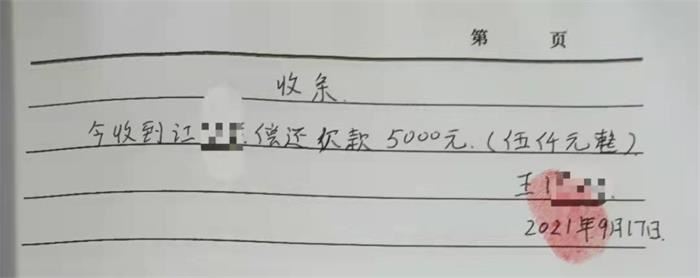 第 页
收条
今收到江 偿还欠款5000元.(伍仟元整)
王
2021年9月17日.